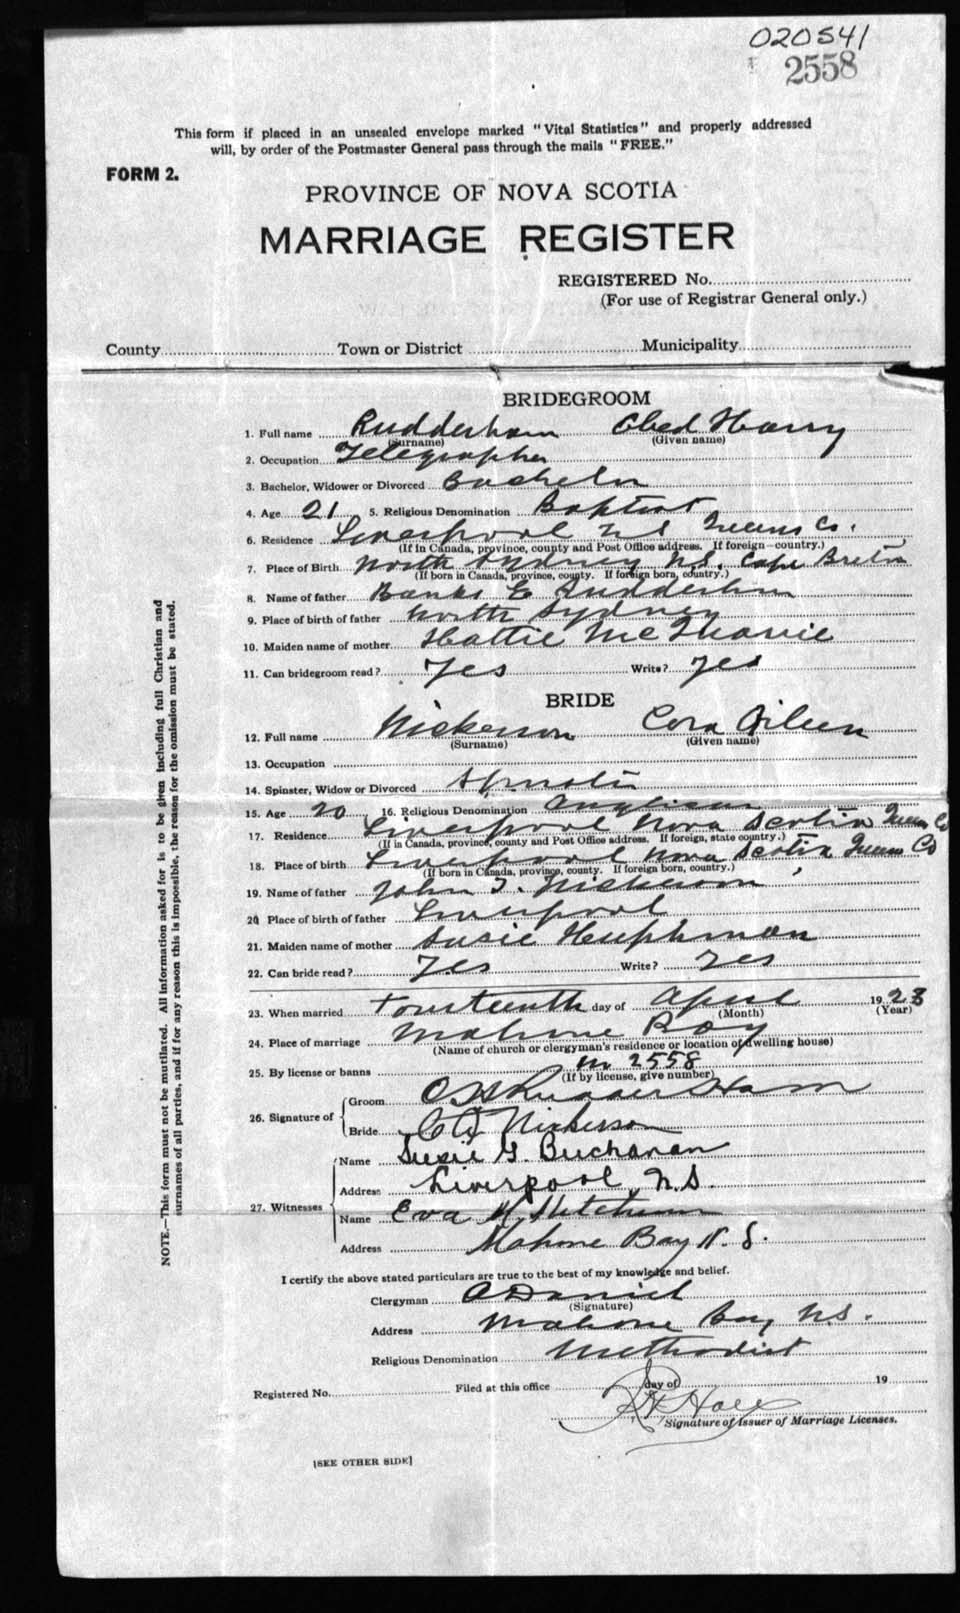 020541
2558
This form if placed in an unsealed envelope marked "Vital Statistics" and properly addressed
will, by order of the Postmaster General pass through the mails "FREE."
FORM 2.
PROVINCE OF NOVA SCOTIA
MARRIAGE REGISTER
REGISTERED No.
(For use of Registrar General only.)
County Town or District Municipality
BRIDEGROOM
1. Full name Rudderham Obed Harry
(Surname) (Given name)
2. Occupation Telegrapher
3. Bachelor, Widower or Divorced Bachelor
4. Age 21 5. Religious Denomination Baptist
6. Residence Liverpool NS Queens Co.
(If in Canada, province, county and Post Office address. If foreign—country.)
7. Place of Birth North Sydney N.S. Cape Breton
(If born in Canada, province, county. If foreign born, country.)
8. Name of father Banks E Rudderham
9. Place of birth of father North Sydney
10. Maiden name of mother Hattie
11. Can bridegroom read? Yes Write? Yes
BRIDE
12. Full name Nickerson Cora Aileen
(Surname) (Given name)
13. Occupation
14. Spinster, Widow or Divorced Spinster
15. Age 20 16. Religious Denomination Anglican
17. Residence Liverpool Nova Scotia Queens Co
(If in Canada, province, county and Post Office address. If foreign, state country.)
18. Place of birth Liverpool Nova Scotia Queens Co
(If born in Canada, province, county. If foreign born, country.)
19. Name of father John T. Nickerson
20 Place of birth of father Liverpool
21. Maiden name of mother Susie Huphman
22. Can bride read? Yes Write? Yes
23. When married Fourteenth day of April 1923
(Month) (Year)
24. Place of marriage Mahone Bay
(Name of church or clergyman's residence or location of dwelling house)
25. By license or banns No 2558
(If by license, give number)
26. Signature of Groom O H Rudderham
Bride C A Nickerson
27. Witnesses Name Susie G. Buchanan
Address Liverpool, N.S.
Name Eva
Address Mahone Bay N.S.
I certify the above stated particulars are true to the best of my knowledge and belief.
Clergyman O Daniel
(Signature)
Address Mahone Bay N.S.
Religious Denomination Methodist
Registered No. Filed at this office day of 19
Signature of Issuer of Marriage Licenses.
[SEE OTHER SIDE]
NOTE.—This form must not be mutilated. All information asked for is to be given including full Christian and
surnames of all parties, and if for any reason this is impossible, the reason for the omission must be stated.